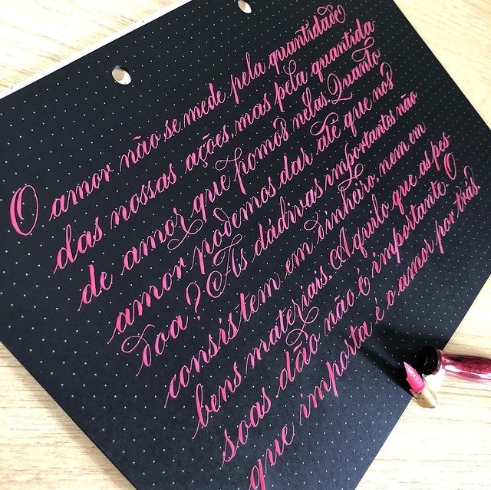 O amor não se mede pela quantidade
das nossas ações, mas pela quantida
de amor que pomos nelas. Quanto
amor podemos dar até que nos
doa? As dádivas importantes não
consistem em dinheiro, nem em
bens materiais. Aquilo que as pes
soas dão não é importante. O
que importa é o amor por trás